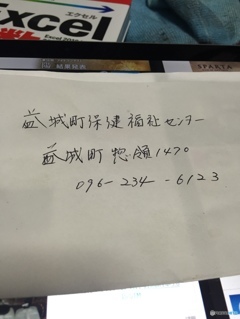 Excel
エクセル
益城町保健福祉センター
益城町惣領1470
096-234-6123